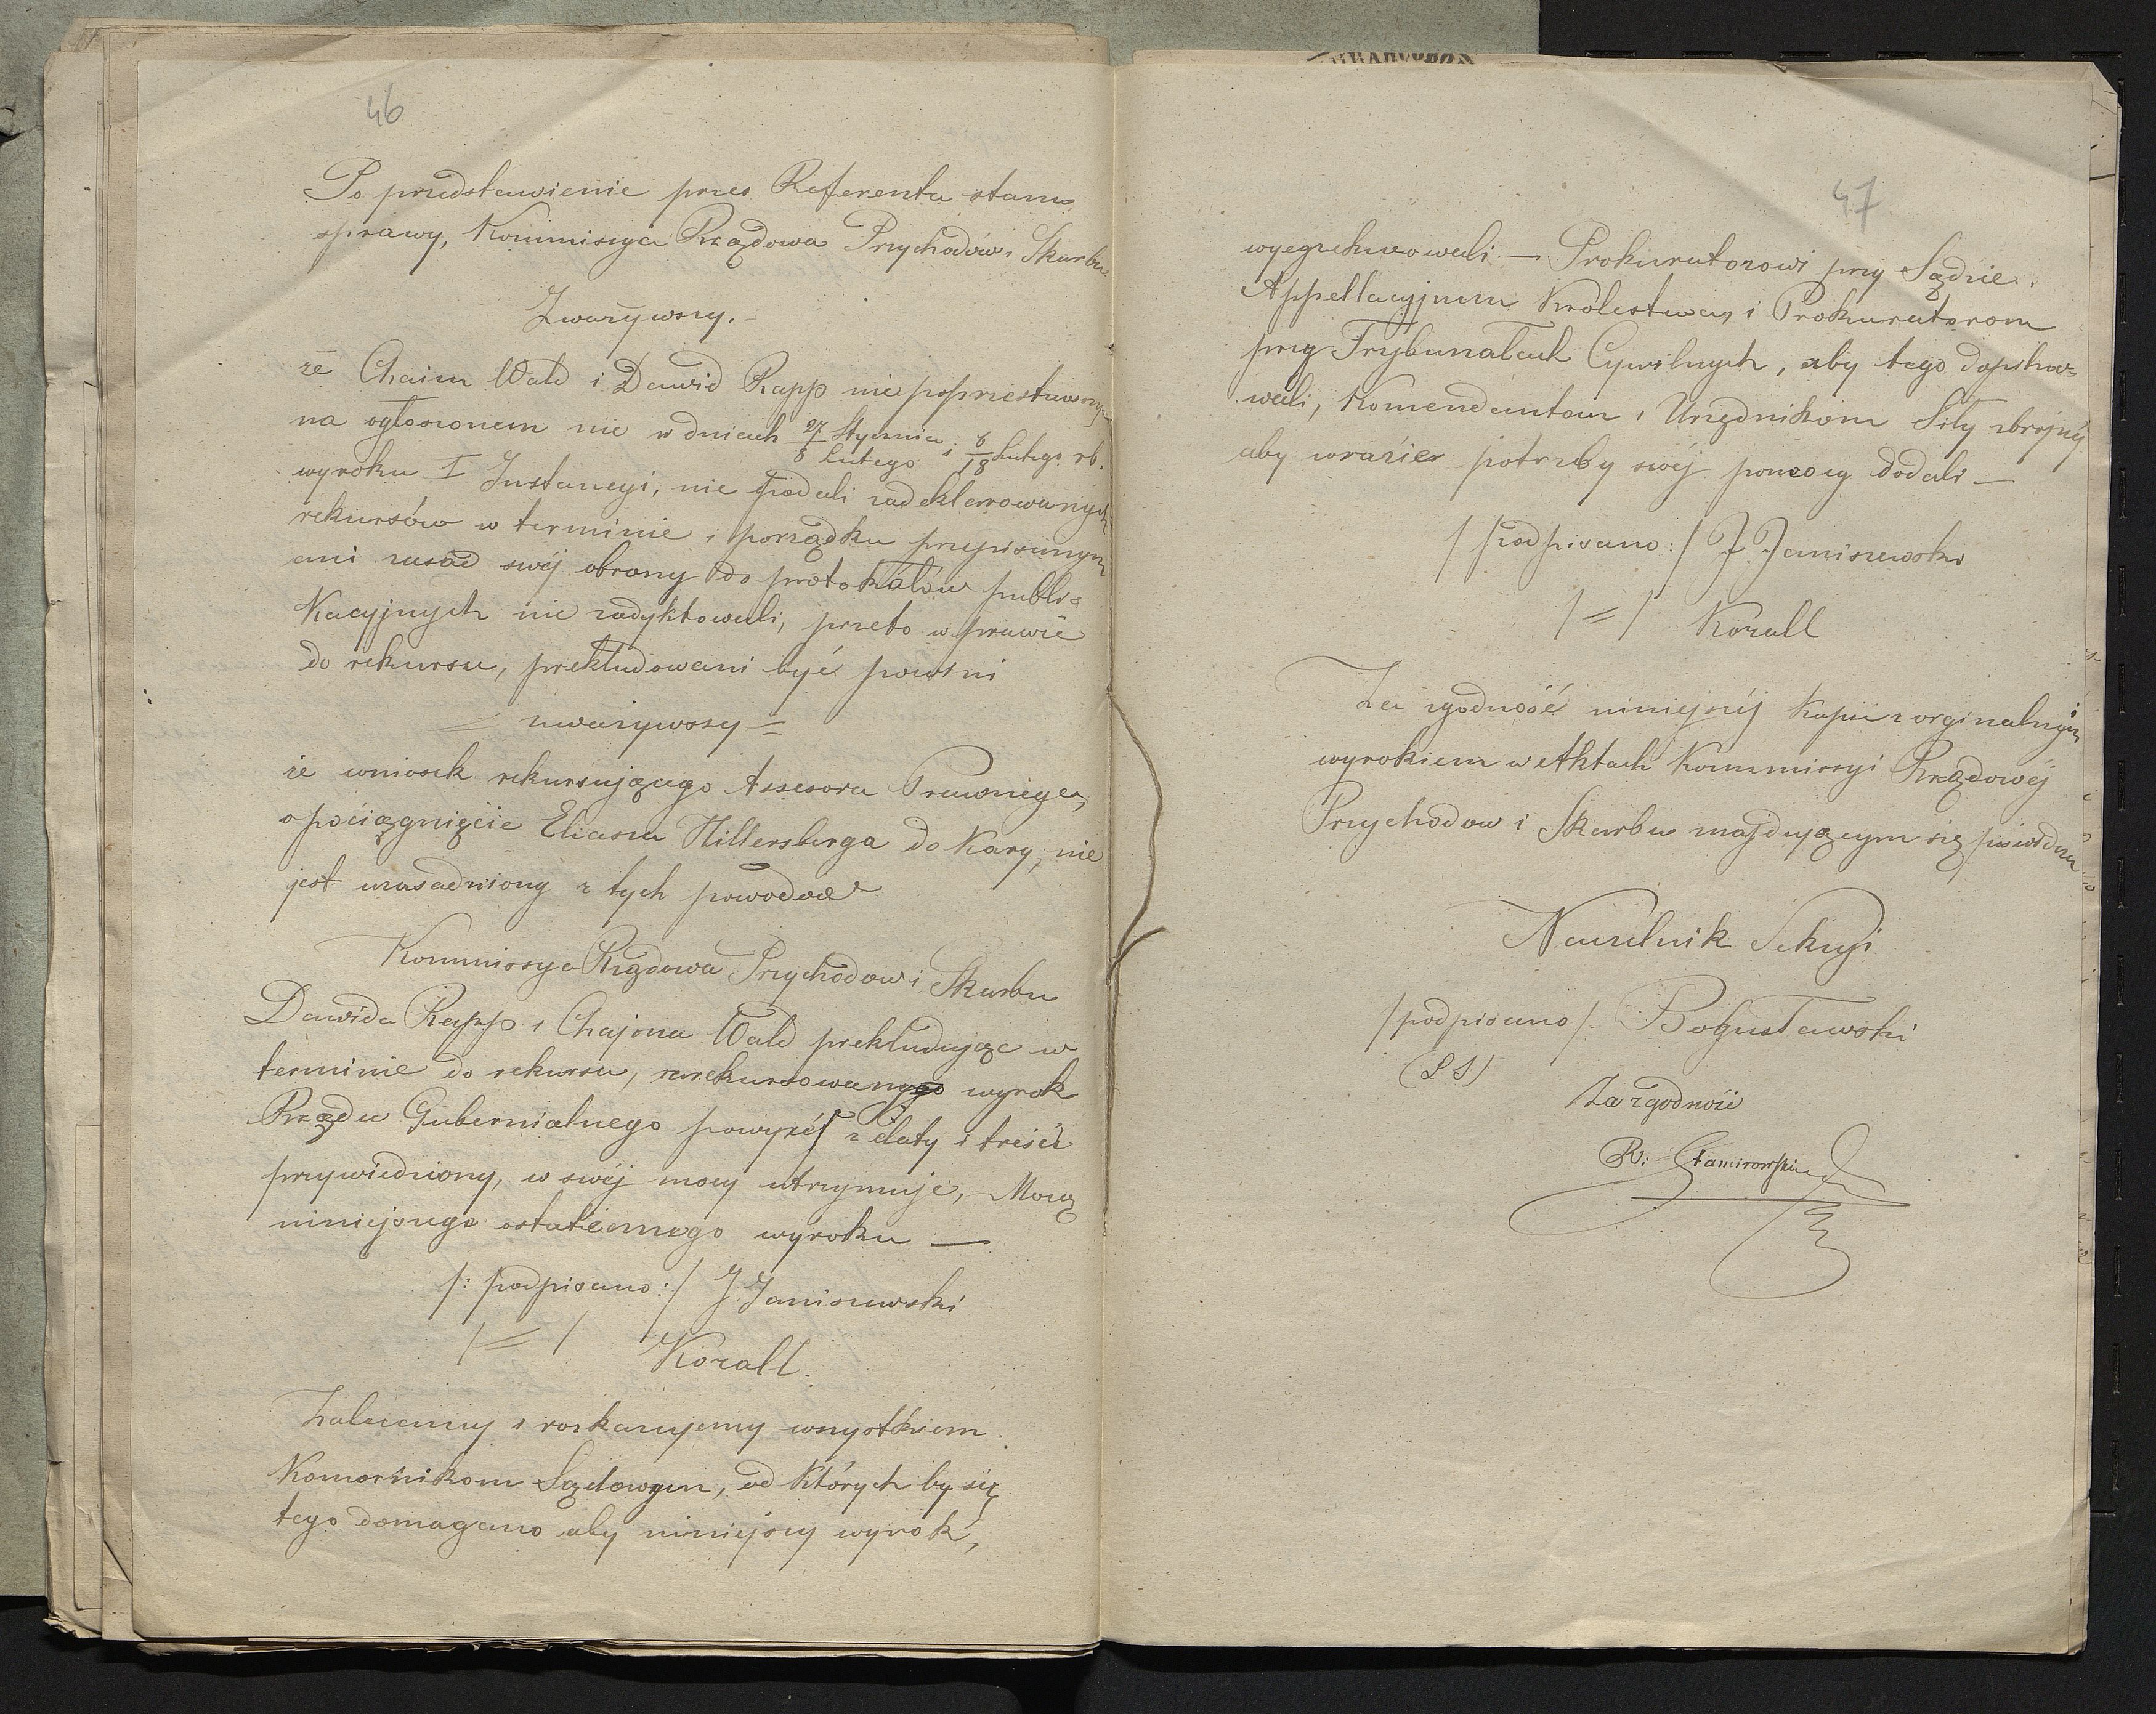 46
Po przedstawienie przez Referenta stanu
sprawy, Kommissya Rządowa Przychodów i Skarbu
Zważywszy.
że Chaim Wald i Dawid Rapp nie poprzestawszy
na ogłoszonem im w dniach 27/8 Stycznia/Lutego i 6/18 Lutego rb.
wyroku I Instancyi, nie podali zadeklarowanych
rekursów w terminie i porządku przepisanym
ani zasad swéj obrony do protokułów publi=
kacyjnych nie zadyktowali, przeto w prawie
do rekursu, prekludowani być powinni
= uważywszy =
że wniosek rekursującego Assesora Prawnego,
o pociągnięcie Eliasza Hillersberga do Kary, nie
jest uzasadniony z tych powodów
Kommissya Rządowa Przychodow i Skarbu
Dawida Rapp i Chajma Wald prekludując w
terminie do rekursu, zarekursowany wyrok
Rządu Gubernialnego powyżéj z daty i treści
przywiedziony, w swéj mocy utrzymuje, Mocą
niniejszego ostatecznego wyroku —
/: podpisano :/ J. Janiszewski
/ = / Korall.
Zalecamy i rozkazujemy wszystkiem
Komornikom Sądowym, od których by się
tego domagano aby niniejszy wyrok,
47
wyegzekwowali. — Prokuratorowi przy Sądzie
Appellacyjnem Królestwa, i Prokuratorom
przy Trybunałach Cywilnych, aby tego dopilno=
wali, Komendantom i Urzędnikom Siły zbrojnéj
aby w razie potrzeby swéj pomocy dodali —
/ podpisano :/ J. Janiszewski
/ = / Korall
Za zgodność niniejszéj Kopii z orginalnym
wyrokiem w Aktach Kommissyi Rządowéj
Przychodow i Skarbu znajdującym się poswiadcza
Naczelnik Sekcyi
/podpisano/. Bogusławski
(LS)
Za zgodność
R: Stamirowski